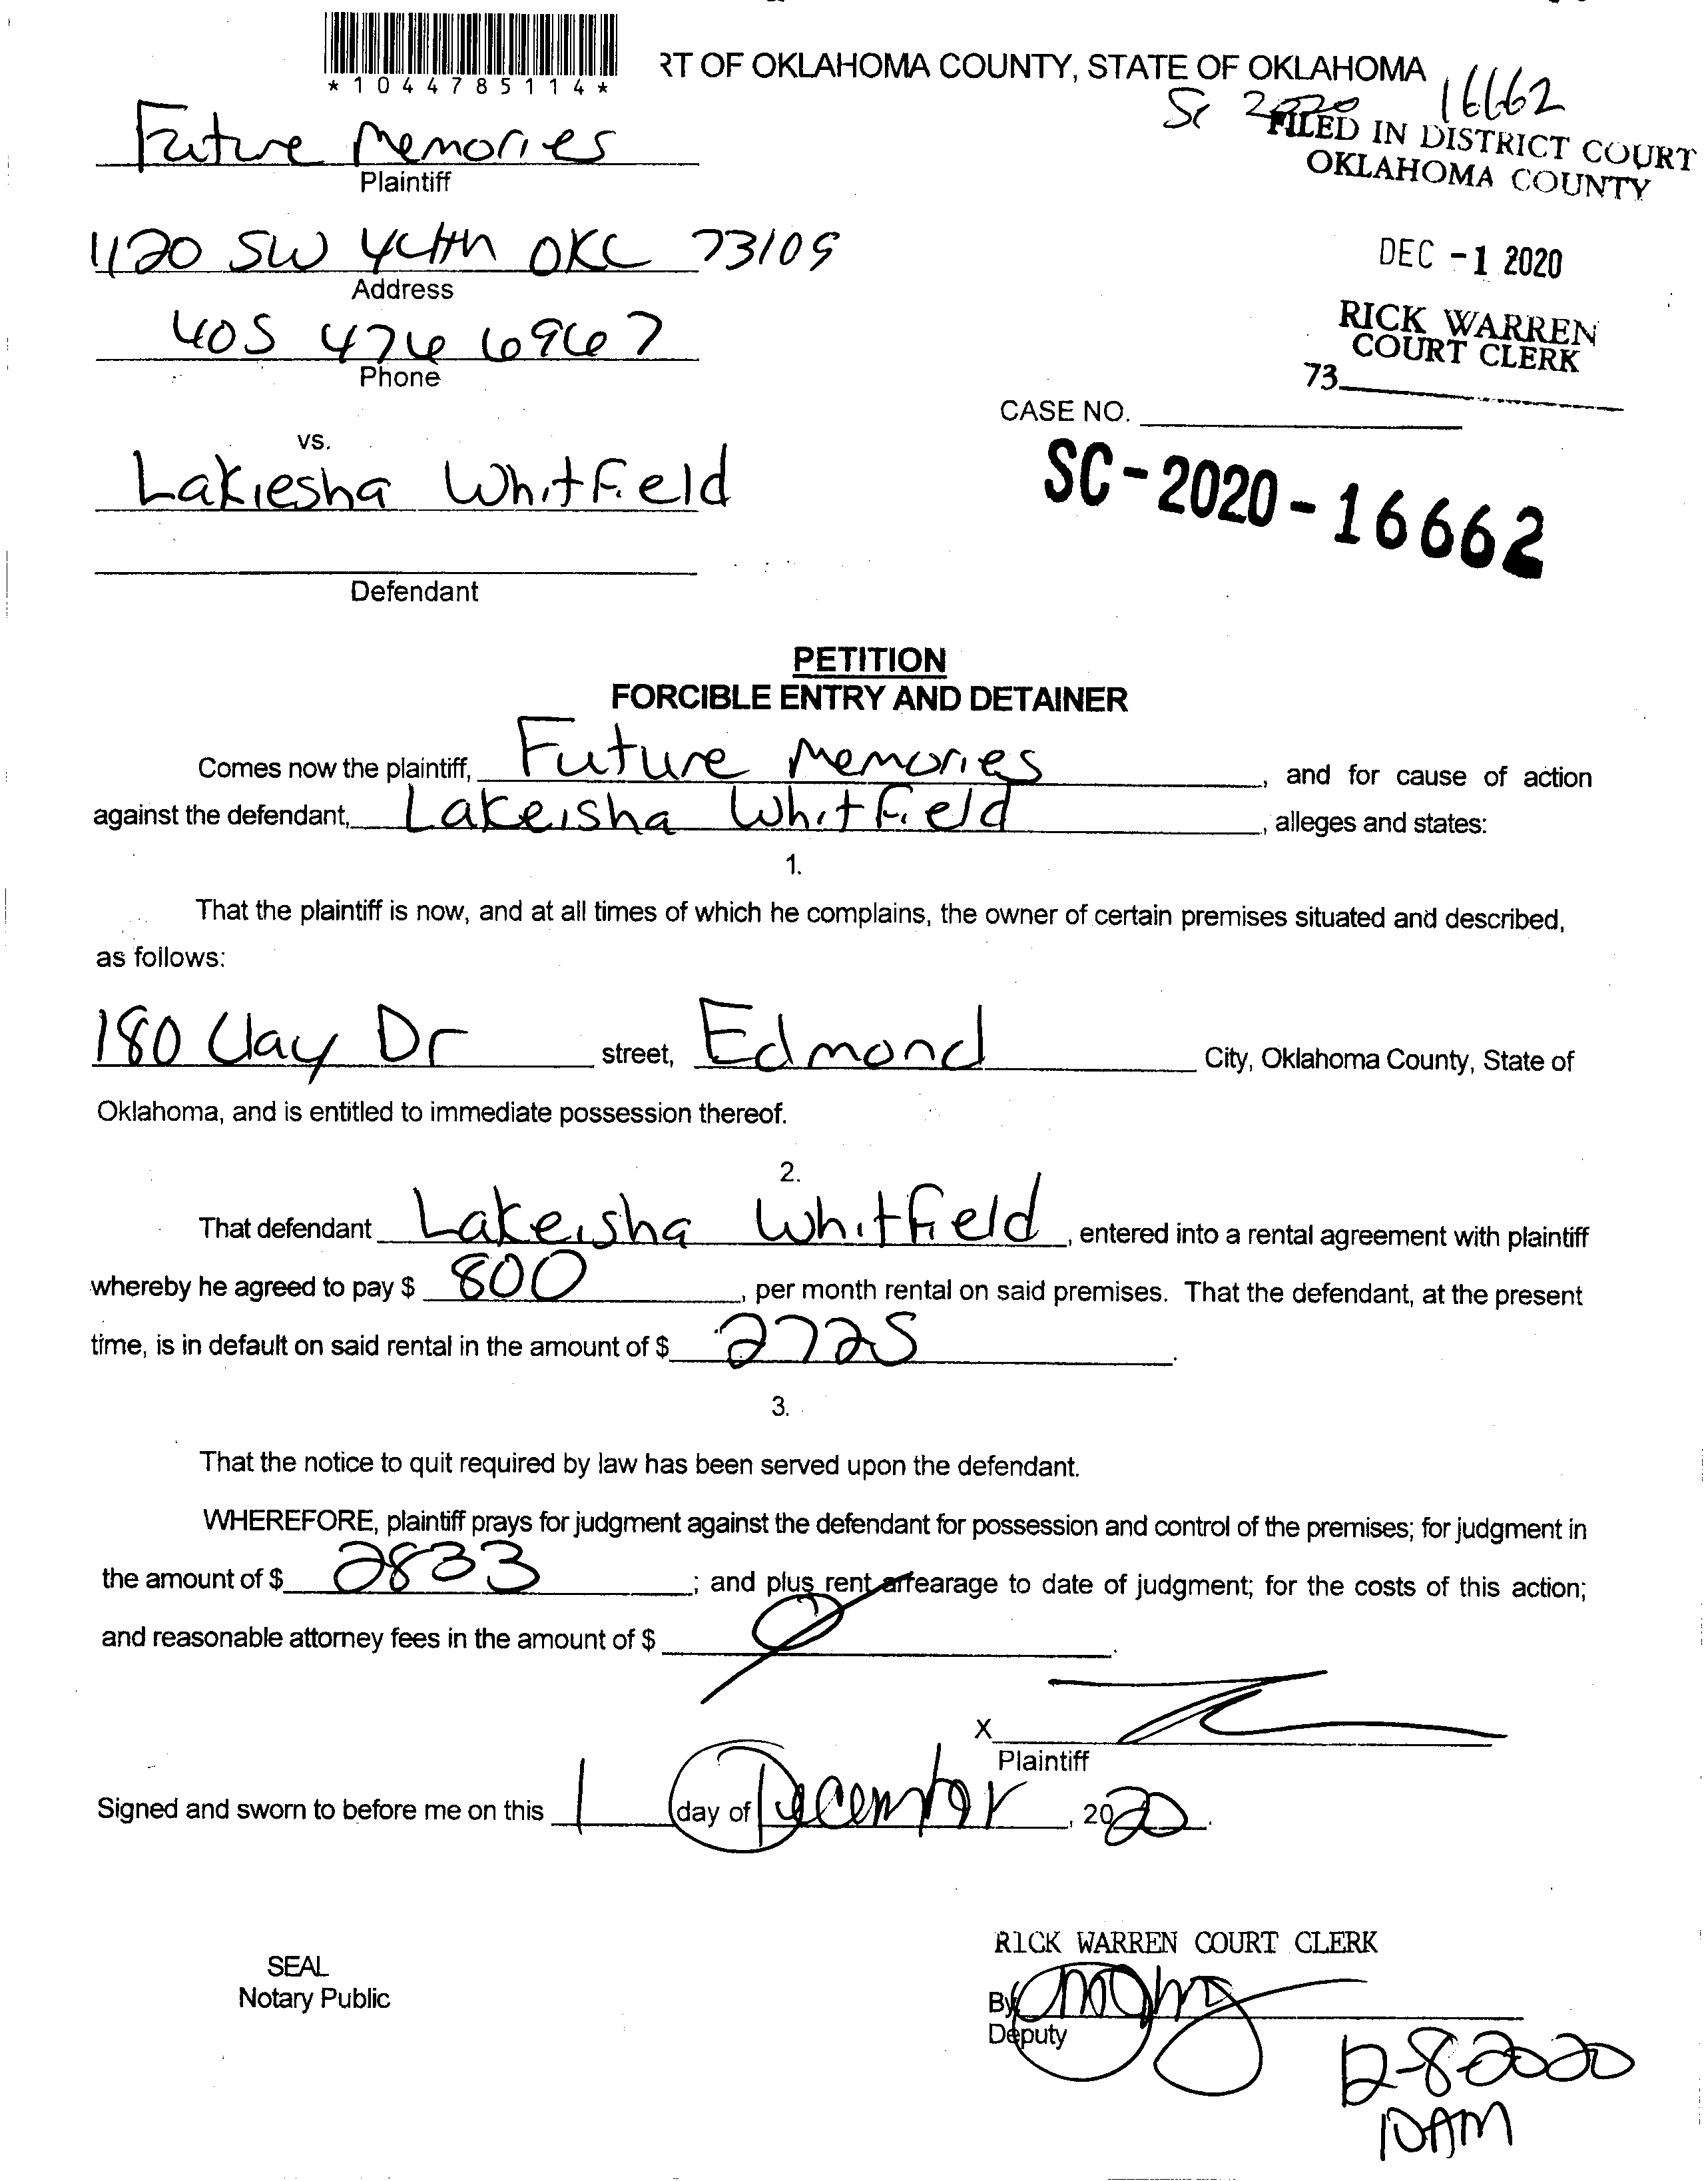 *1044785114*
RT OF OKLAHOMA COUNTY, STATE OF OKLAHOMA
SC 2020 16662
FILED IN DISTRICT COURT
OKLAHOMA COUNTY
DEC -1 2020
RICK WARREN
COURT CLERK
73
Future Memories
Plaintiff
1120 SW 44th OKC 73109
Address
405 476 6967
Phone
CASE NO.
SC-2020-16662
vs.
Lakiesha Whitfield
Defendant
PETITION
FORCIBLE ENTRY AND DETAINER
Comes now the plaintiff, Future Memories, and for cause of action
against the defendant, Lakeisha Whitfield, alleges and states:
1.
That the plaintiff is now, and at all times of which he complains, the owner of certain premises situated and described,
as follows:
180 Clay Dr street, Edmond City, Oklahoma County, State of
Oklahoma, and is entitled to immediate possession thereof.
2.
That defendant Lakeisha Whitfield, entered into a rental agreement with plaintiff
whereby he agreed to pay $ 800, per month rental on said premises. That the defendant, at the present
time, is in default on said rental in the amount of $ 2725.
3.
That the notice to quit required by law has been served upon the defendant.
WHEREFORE, plaintiff prays for judgment against the defendant for possession and control of the premises; for judgment in
the amount of $ 2833; and plus rent arrearage to date of judgment; for the costs of this action;
and reasonable attorney fees in the amount of $ 0.
X
Plaintiff
Signed and sworn to before me on this 1 day of December, 2020.
SEAL
Notary Public
RICK WARREN COURT CLERK
By
Deputy
12-8-2020
10AM